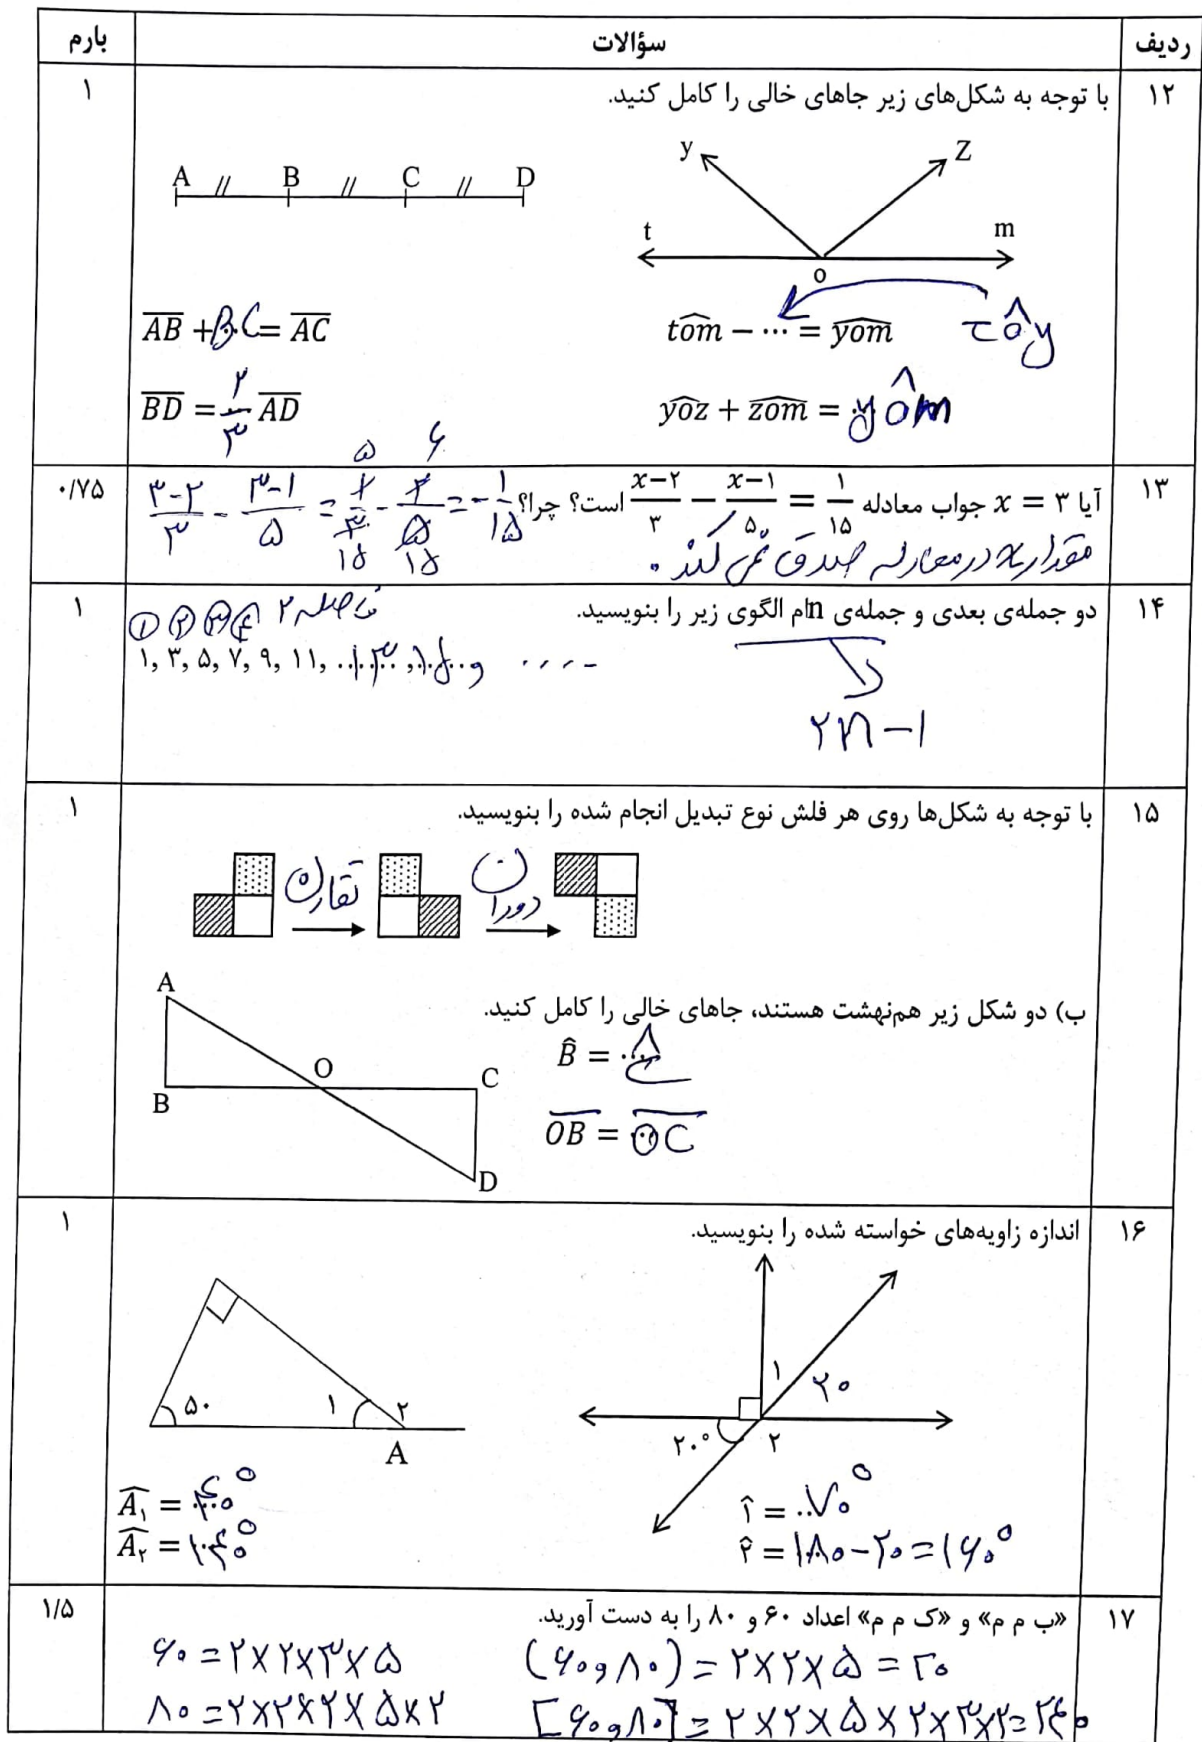 ردیف سؤالات بارم
۱۲ با توجه به شکل‌های زیر جاهای خالی را کامل کنید. ۱
A B C D
y Z
t m
o
AB + BC = AC
tôm − ... = yôm tôy
BD = ۲/۳ AD
yôz + zôm = yôm
۱۳ آیا x = ۳ جواب معادله x−۲/۳ − x−۱/۵ = ۱/۱۵ است؟ چرا؟ ۰/۷۵
۳-۲/۳ - ۳-۱/۵ = ۱/۳ - ۲/۵ = -۱/۱۵
۵ ۶
۱۵ ۱۵
مقدار x در معادله صدق نمی کند.
۱۴ دو جمله‌ی بعدی و جمله‌ی nام الگوی زیر را بنویسید. ۱
① ② ③ ④ فاصله ۲
۱, ۳, ۵, ۷, ۹, ۱۱, ۱۳, ۱۵ و ....
۲n-۱
۱۵ با توجه به شکل‌ها روی هر فلش نوع تبدیل انجام شده را بنویسید. ۱
تقارن دوران
ب) دو شکل زیر هم‌نهشت هستند، جاهای خالی را کامل کنید.
A
O C
B
D
B̂ = Ĉ
OB = OC
۱۶ اندازه زاویه‌های خواسته شده را بنویسید. ۱
۵۰ ۱ ۲
A
۱ ۲۰
۲۰° ۲
A₁ = ۴۰°
A₂ = ۱۴۰°
۱̂ = ۷۰°
۲̂ = ۱۸۰-۲۰=۱۶۰°
۱۷ «ب م م» و «ک م م» اعداد ۶۰ و ۸۰ را به دست آورید. ۱/۵
۶۰ = ۲×۲×۳×۵
(۶۰و۸۰) = ۲×۲×۵ = ۲۰
۸۰ = ۲×۲×۲×۵×۲
[۶۰و۸۰] = ۲×۲×۵×۲×۳×۲=۲۴۰